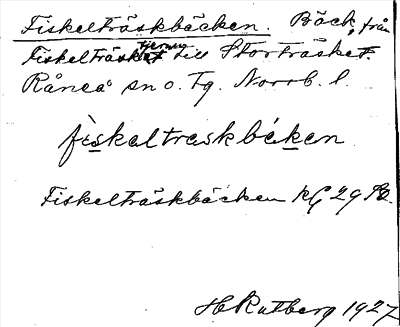 Fiskelträskbäcken. Bäck, från
Fiskelträsktjärnen till Storträsket.
Råneå sn o. Tg. Norrb. l.
fiskaltraskbäken
Fiskelträskbäcken
HRutberg 1927